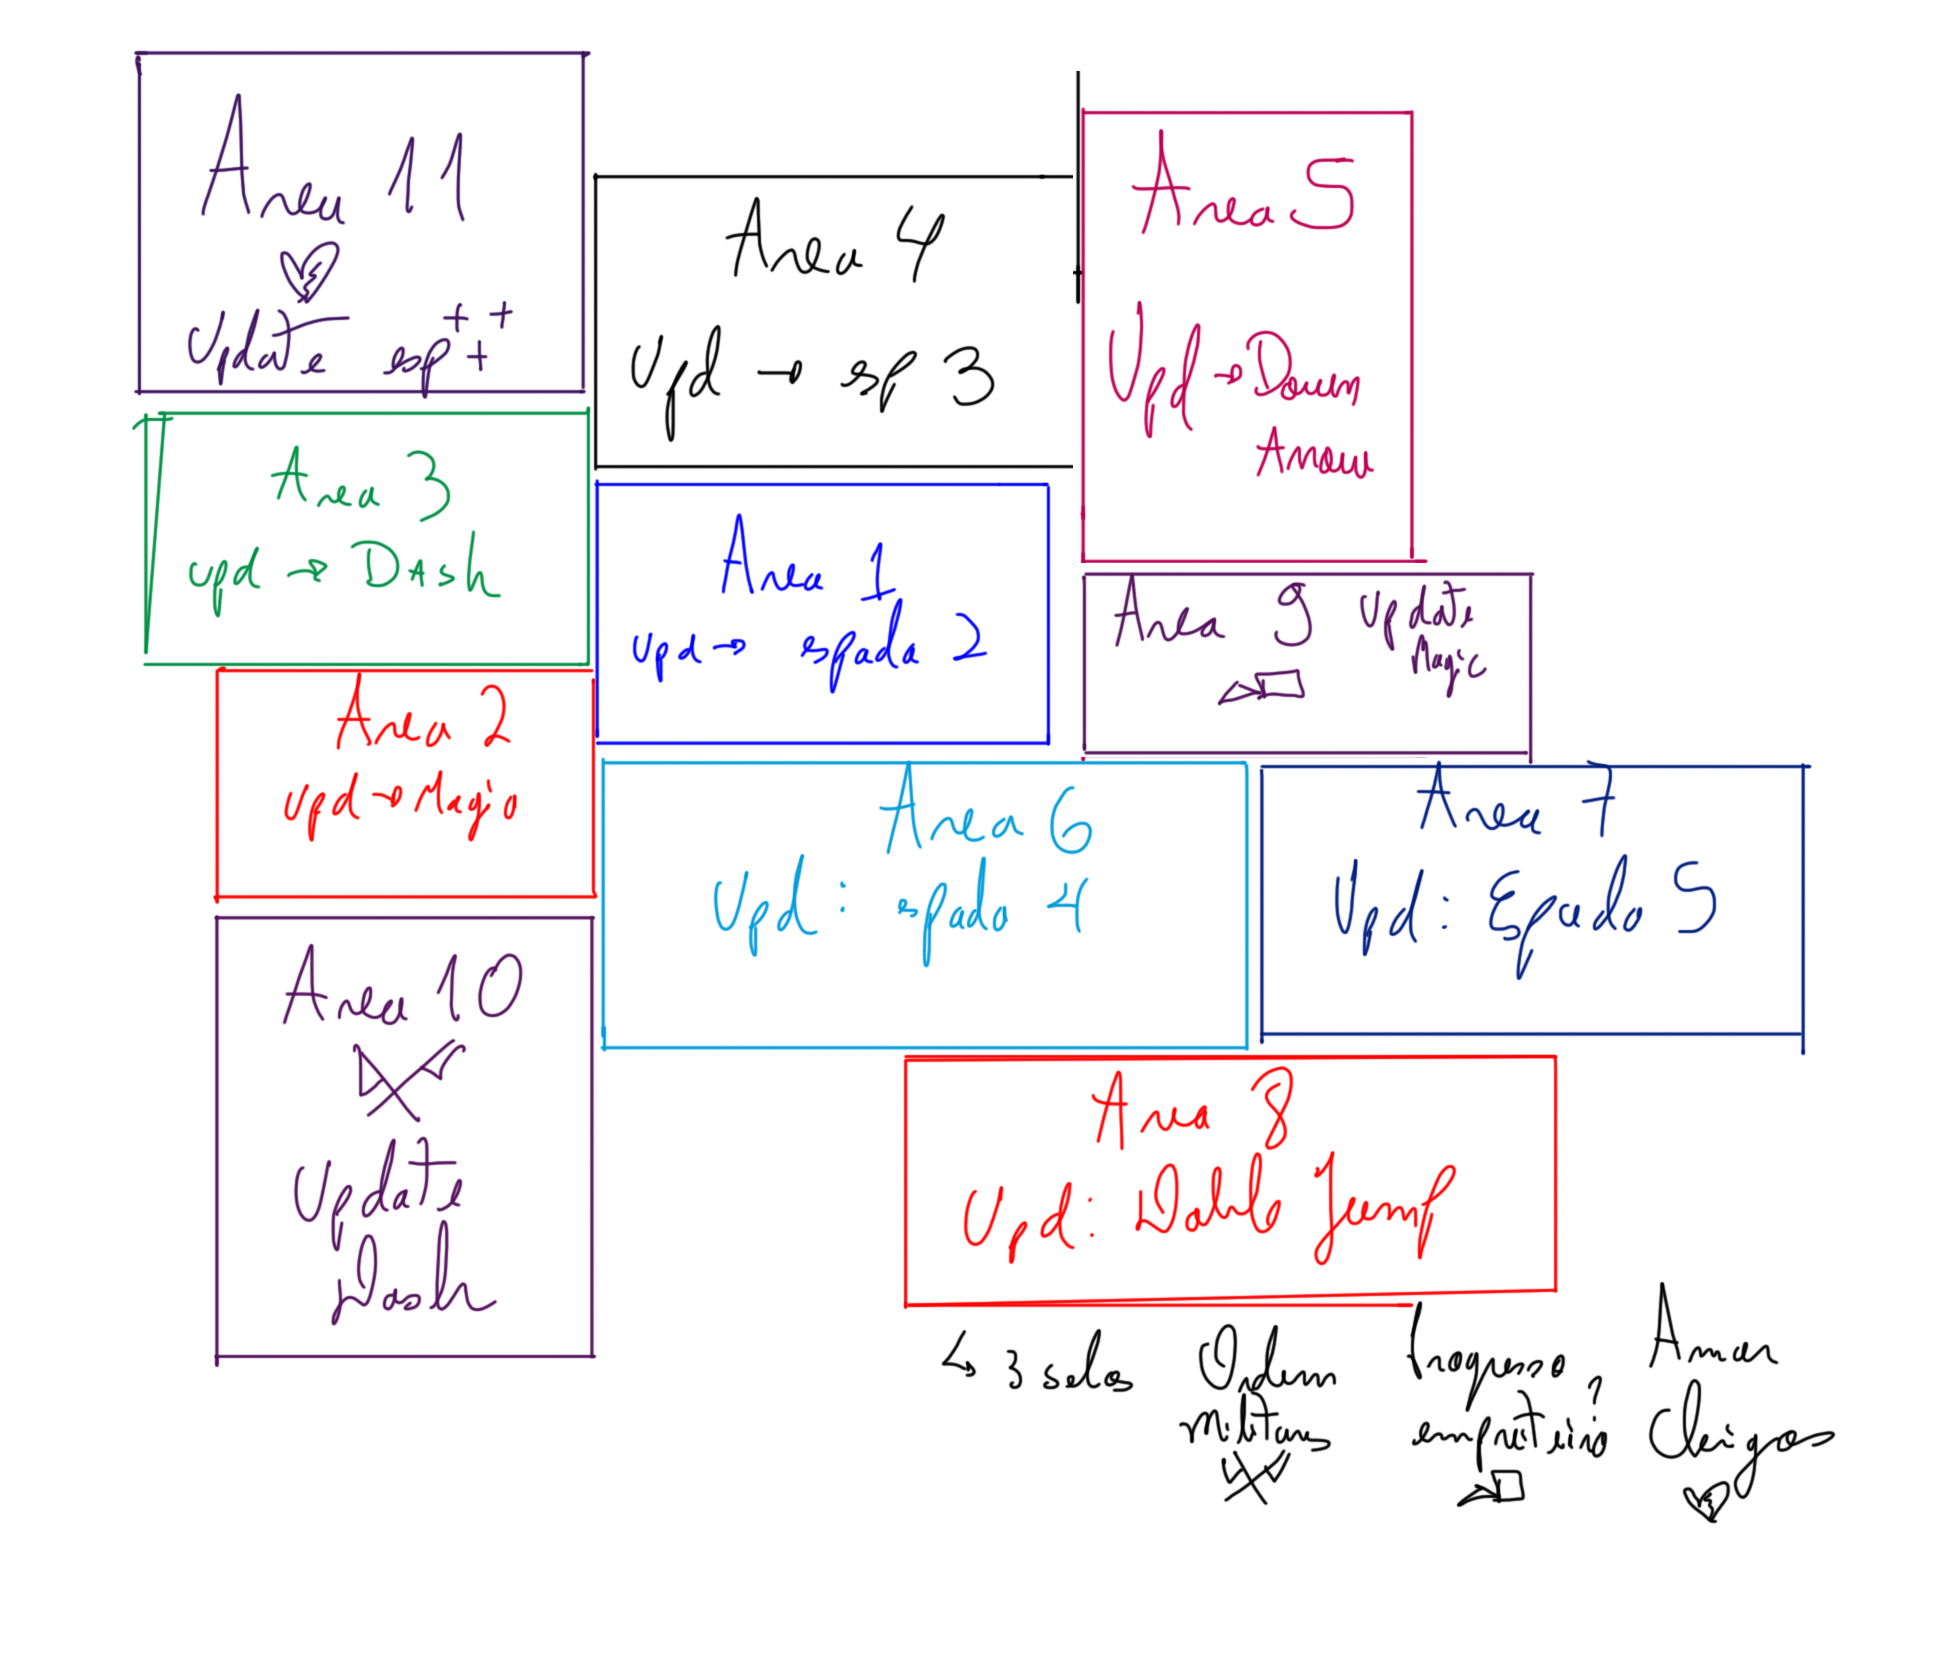 Area 11
Update esp+++
Area 4
Upd → sp 3
Area 5
Upd → Down
Arrow
Area 3
upd → DAsh
Area 1
upd → espada 2
Area 9 Update
Magic
Area 2
upd → Magia
Area 6
Upd: espada 4
Area 7
Upd: Espada 5
Area 10
Update
Dash
Area 8
Upd: Jump
↳ 3 selos Ordem Progresso Amor
militares ? Clérigos